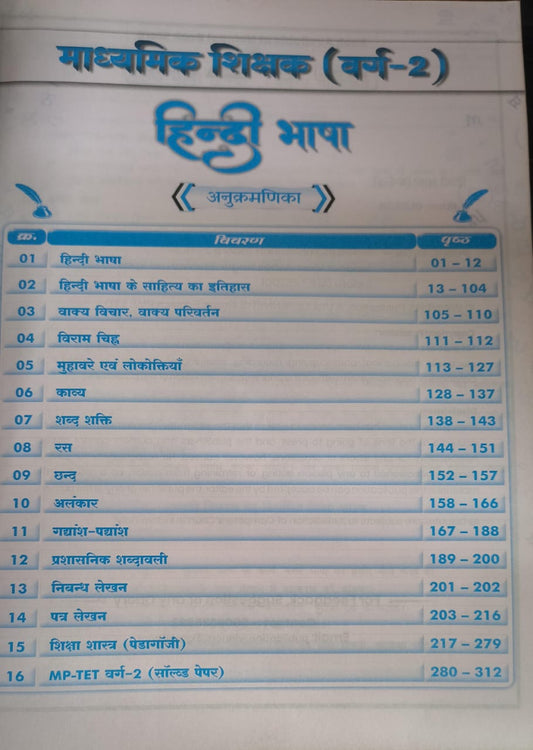 माध्यमिक शिक्षक (वर्ग-2)
हिन्दी भाषा
अनुक्रमणिका
क्र. विवरण पृष्ठ
01 हिन्दी भाषा 01 – 12
02 हिन्दी भाषा के साहित्य का इतिहास 13 – 104
03 वाक्य विचार, वाक्य परिवर्तन 105 – 110
04 विराम चिह्न 111 – 112
05 मुहावरे एवं लोकोक्तियाँ 113 – 127
06 काव्य 128 – 137
07 शब्द शक्ति 138 – 143
08 रस 144 – 151
09 छन्द 152 – 157
10 अलंकार 158 – 166
11 गद्यांश-पद्यांश 167 – 188
12 प्रशासनिक शब्दावली 189 – 200
13 निबन्ध लेखन 201 – 202
14 पत्र लेखन 203 – 216
15 शिक्षा शास्त्र (पेडागॉजी) 217 – 279
16 MP-TET वर्ग-2 (सॉल्व्ड पेपर) 280 – 312